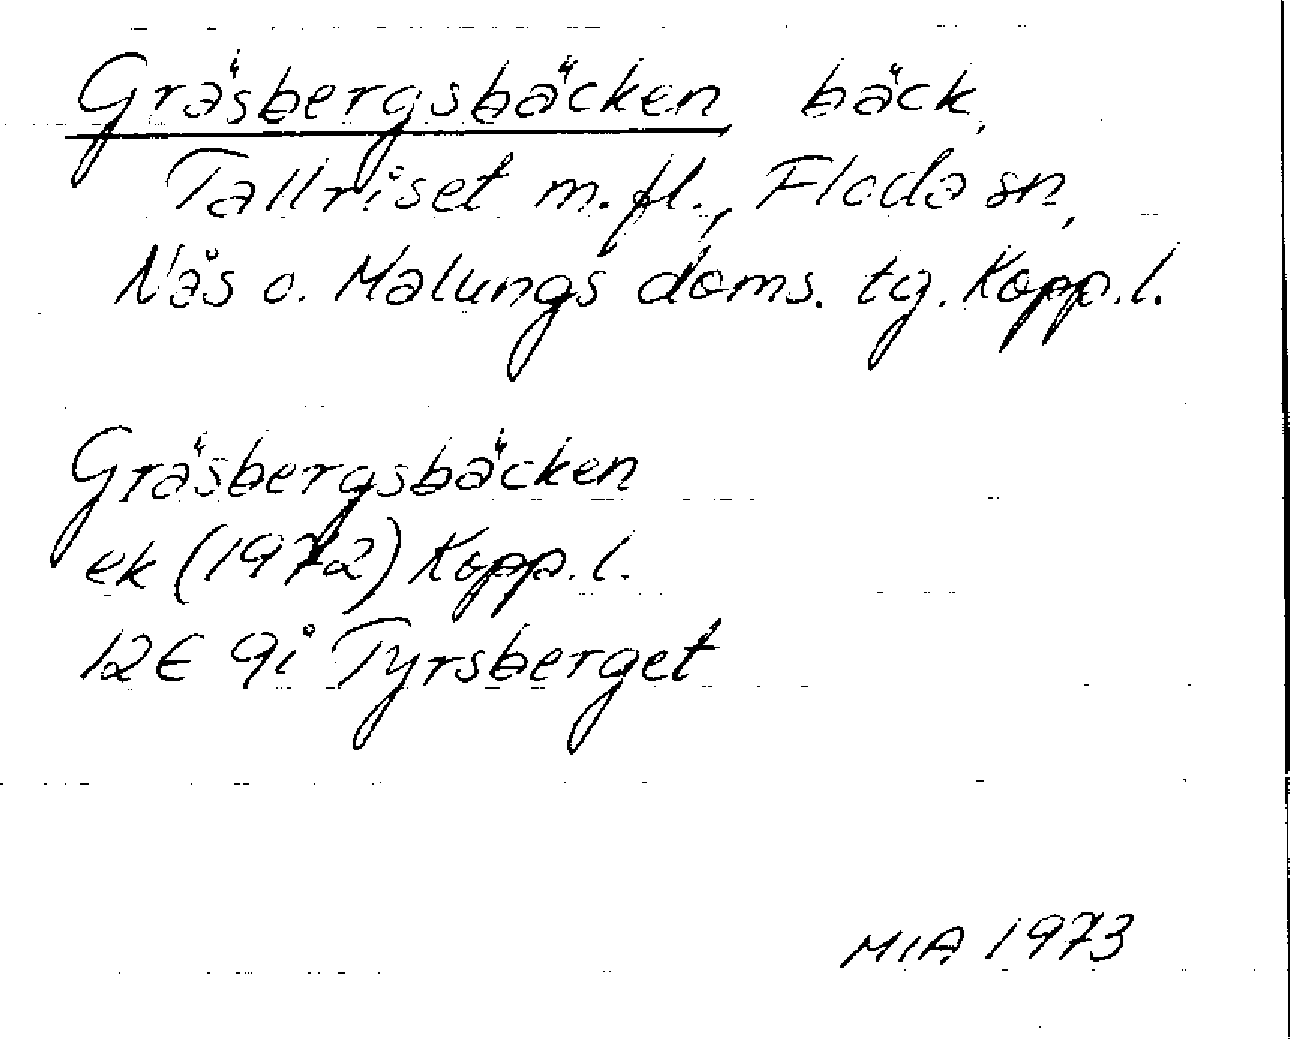 Gräsbergsbäcken, bäck,
Tallriset m.fl., Floda sn,
Nås o. Malungs doms. tg. Kopp.l.
Gräsbergsbäcken
ek (1972) Kopp.l.
12E 9i Tyrsberget
MIA 1973